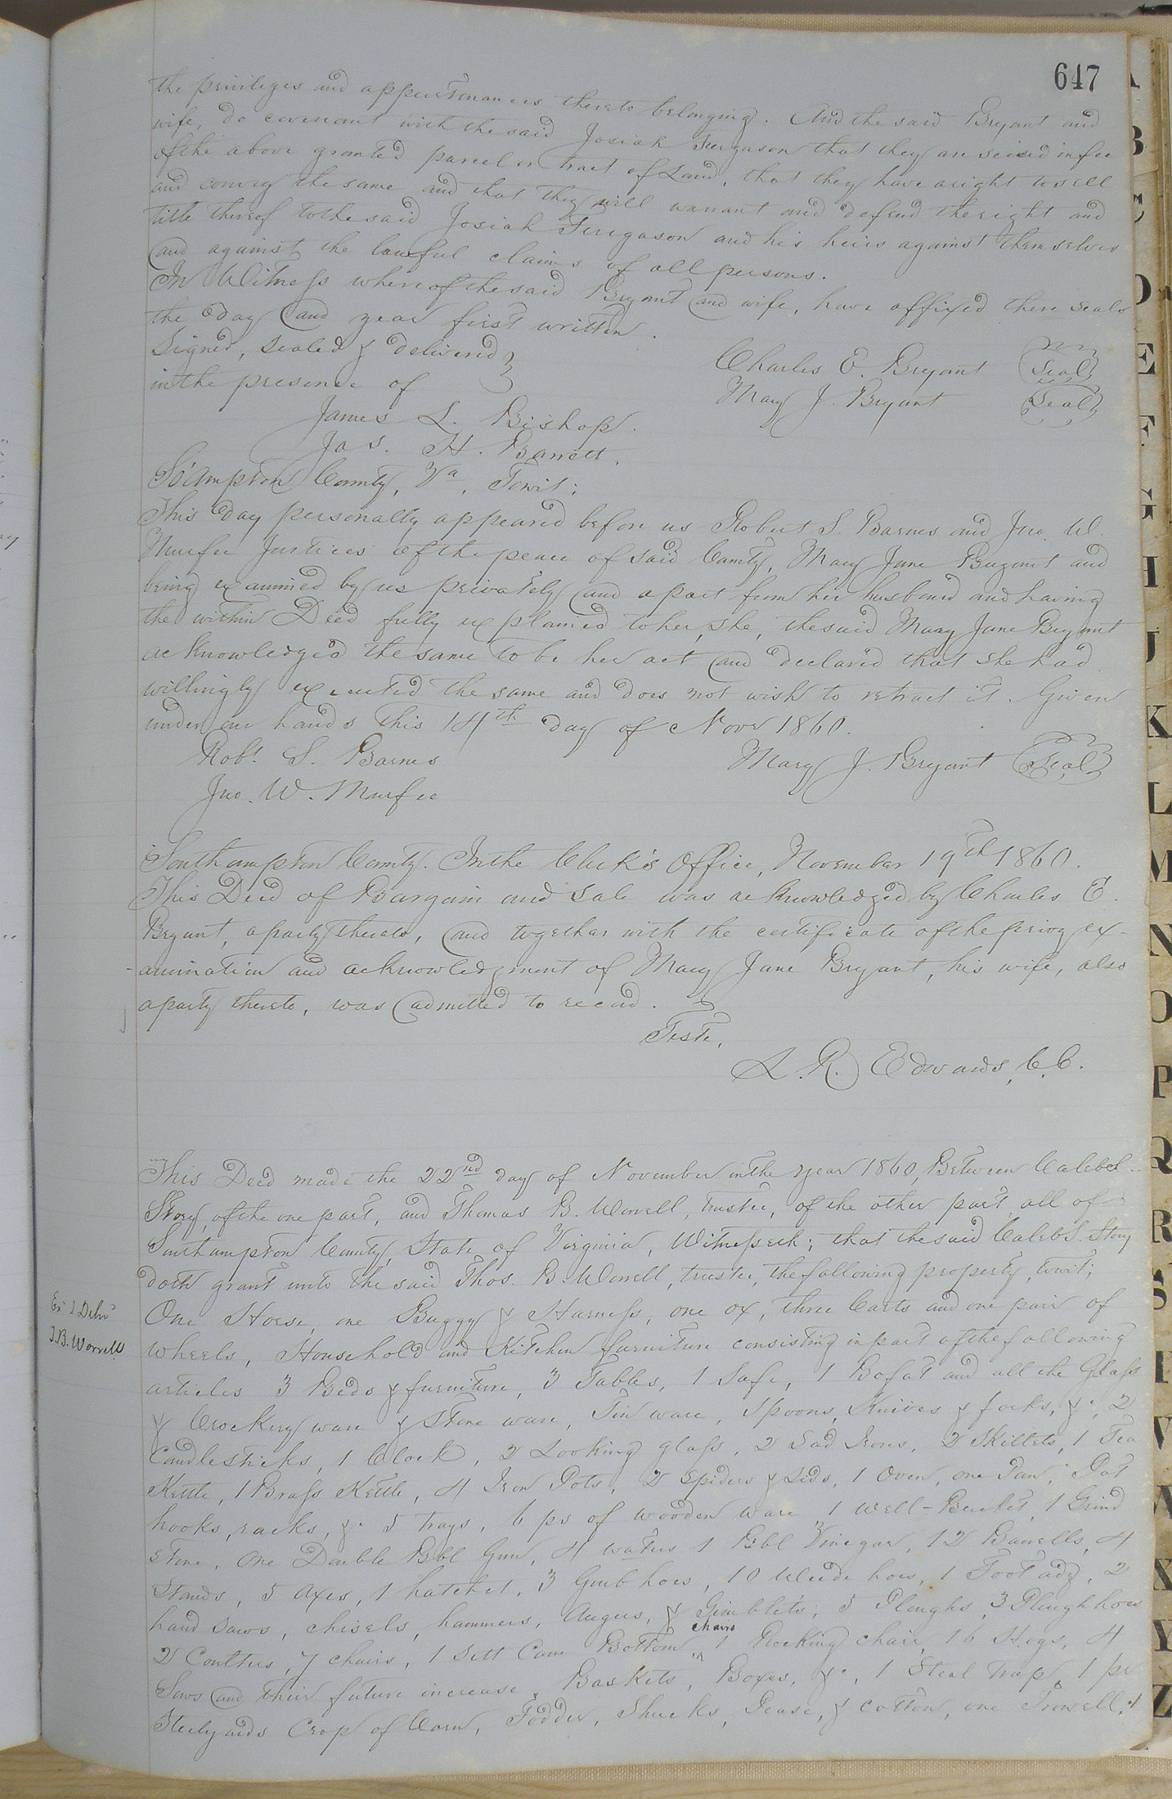 647
the privileges and appurtenances thereto belonging. And the said Bryant and
wife, do covenant with the said Josiah Ferguson that they are seized in fee
of the above granted parcel or tract of Land, that they have a right to sell
and convey the same and that they will warrant and defend the right and
title thereof to the said Josiah Ferguson and his heirs against themselves
and against the lawful claims of all persons.
In Witness whereof the said Bryant and wife, have affixed there seals
the day and year first written.
Signed, sealed & delivered
in the presence of
Charles E. Bryant Seal
Mary J. Bryant Seal
James L. Bishop.
Jas. H. Barrett.
So'ampton County, Va, Towit:
This day personally appeared before us Robert S. Barnes and Jno. W
Murfee Justices of the peace of said County, Mary Jane Bryant and
being examined by us privately and apart from her husband and having
the within Deed fully explained to her, she, the said Mary Jane Bryant
acknowledged the same to be her act and declared that she had
willingly executed the same and does not wish to retract it. Given
under our hands this 14th day of Novr 1860.
Robt. S. Barnes
Mary J. Bryant Seal
Jno. W. Murfee
Southampton County. In the Clerk's Office, November 19th 1860.
This Deed of Bargain and Sale was acknowledged by Charles E.
Bryant, a party thereto, and together with the certificate of the privy ex-
amination and acknowledgment of Mary Jane Bryant, his wife, also
a party thereto, was admitted to record.
Teste,
L. R. Edwards, C.C.
This Deed made the 22nd day of November in the year 1860, Between Caleb S.
Story, of the one part, and Thomas B. Worrell, trustee, of the other part, all of
Southampton County, State of Virginia, Witnesseth; that the said Caleb S. Story
doth grant unto the said Thos. B. Worrell, trustee, the following property, towit;
Ex d & Deld
T.B. Worrell
One Horse, one Buggy & Harness, one ox, three Carts and one pair of
wheels, Household and Kitchen furniture consisting in part of the following
articles 3 Beds & furniture, 3 Tables, 1 Safe, 1 Bofat and all the Glass
& Crockery ware & Stone ware, Tin ware, Spoons, Knives & forks, &c, 2
Candlesticks, 1 Clock, 2 Looking glass, 2 Sad Irons, 2 Skillets, 1 Tea
Kettle, 1 Brass Kettle, 4 Iron Pots, 2 Spiders & Lids, 1 Oven, one Pan, Pot
hooks, racks, &c 5 trays, 6 ps of wooden ware 1 Well-Bucket, 1 Grind
stone, One Double Bbl Gun, 4 1 Bbl Vinegar, 12 Barrells, 4
Stands, 5 Axes, 1 hatchet, 3 Grub hoes, 10 Weede hoes, 1 Foot adz, 2
hand saws, chisels, hammers, Augers, & Gimblets, 5 Ploughs, 3 Plough hoes
2 Coulters, 7 chairs, 1 Sett Cane Bottom chairs 1 Rocking chair, 16 Hogs, 4
Sows and their future increase, Baskets, Boxes, &c, 1 Steal Trap, 1 pr
Steelyards Crop of Corn, Fodder, Shucks, Pease, & cotton, one Trowell,